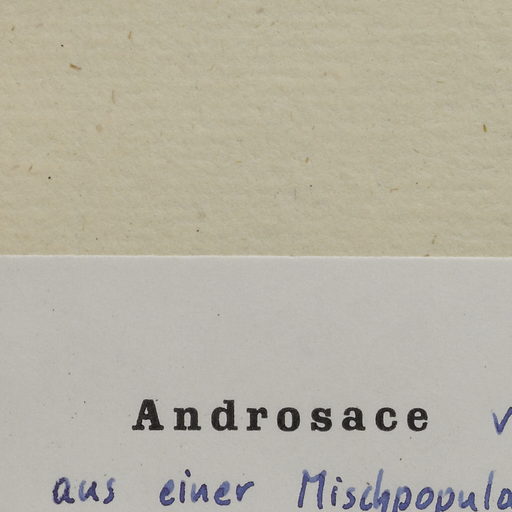 Androsace v
aus einer Mischpopula